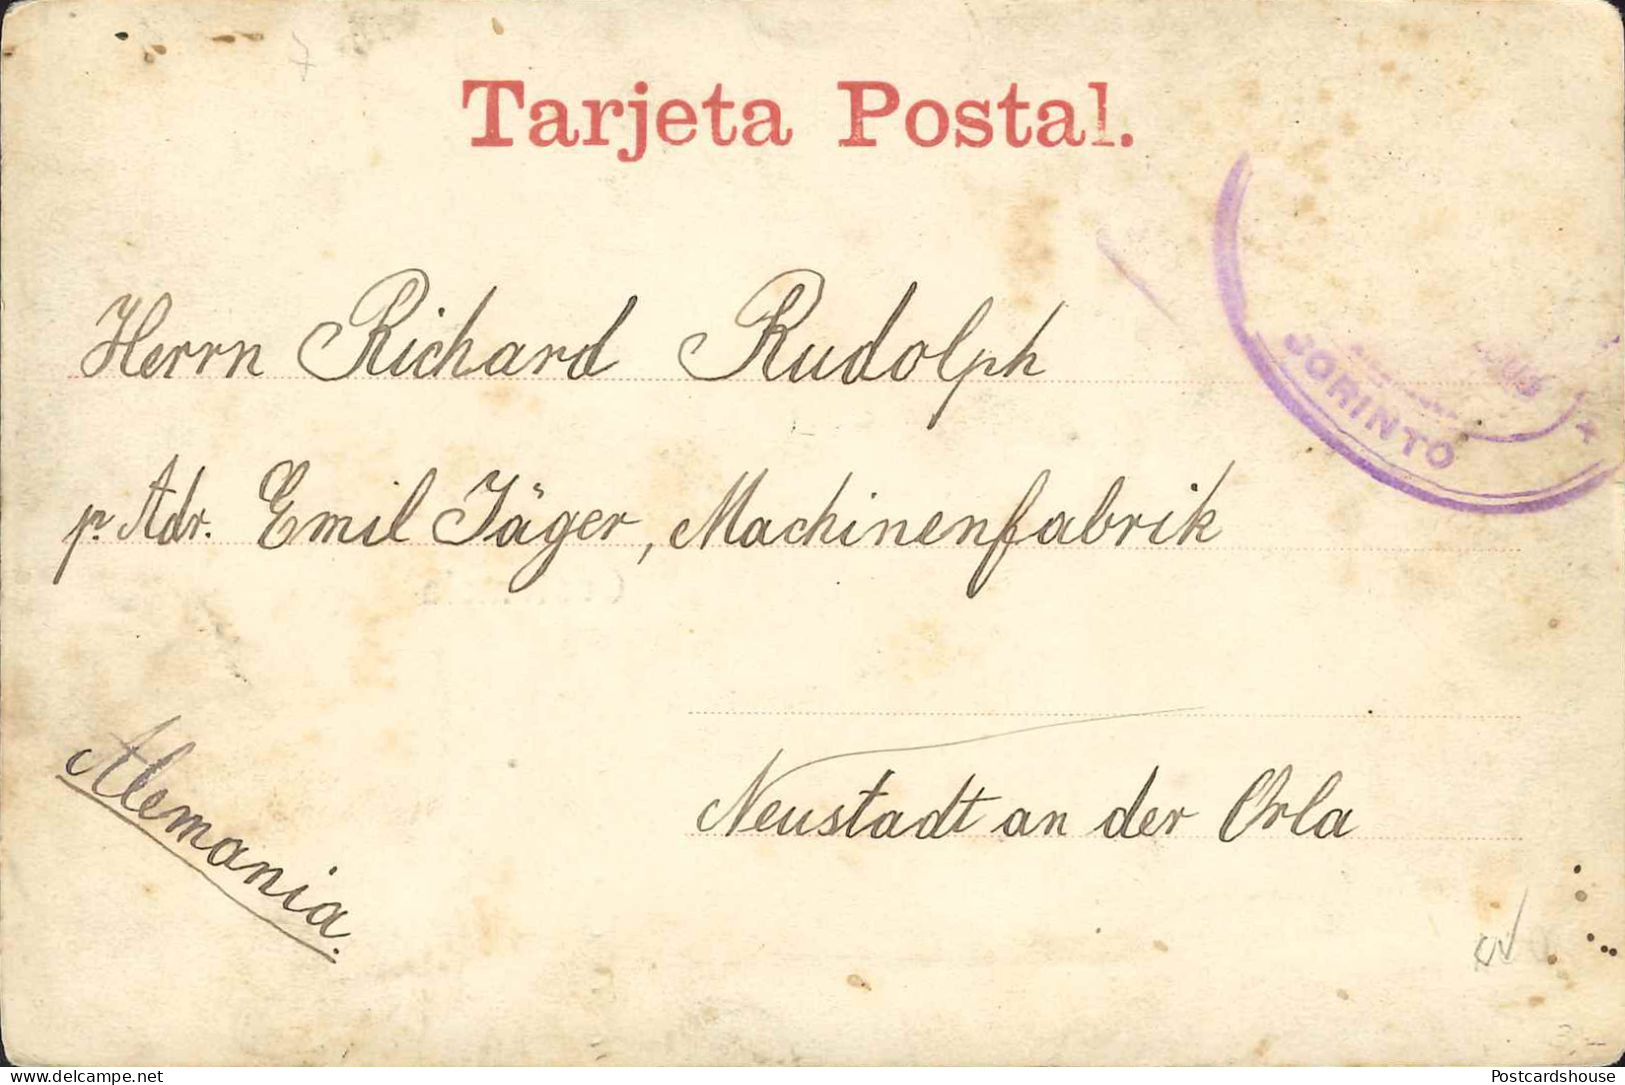 Tarjeta Postal.
CORINTO
Herrn Richard Rudolph
p. Adr. Emil Jäger, Machinenfabrik
Neustadt an der Orla
Alemania.
delcampe.net
Postcardshouse